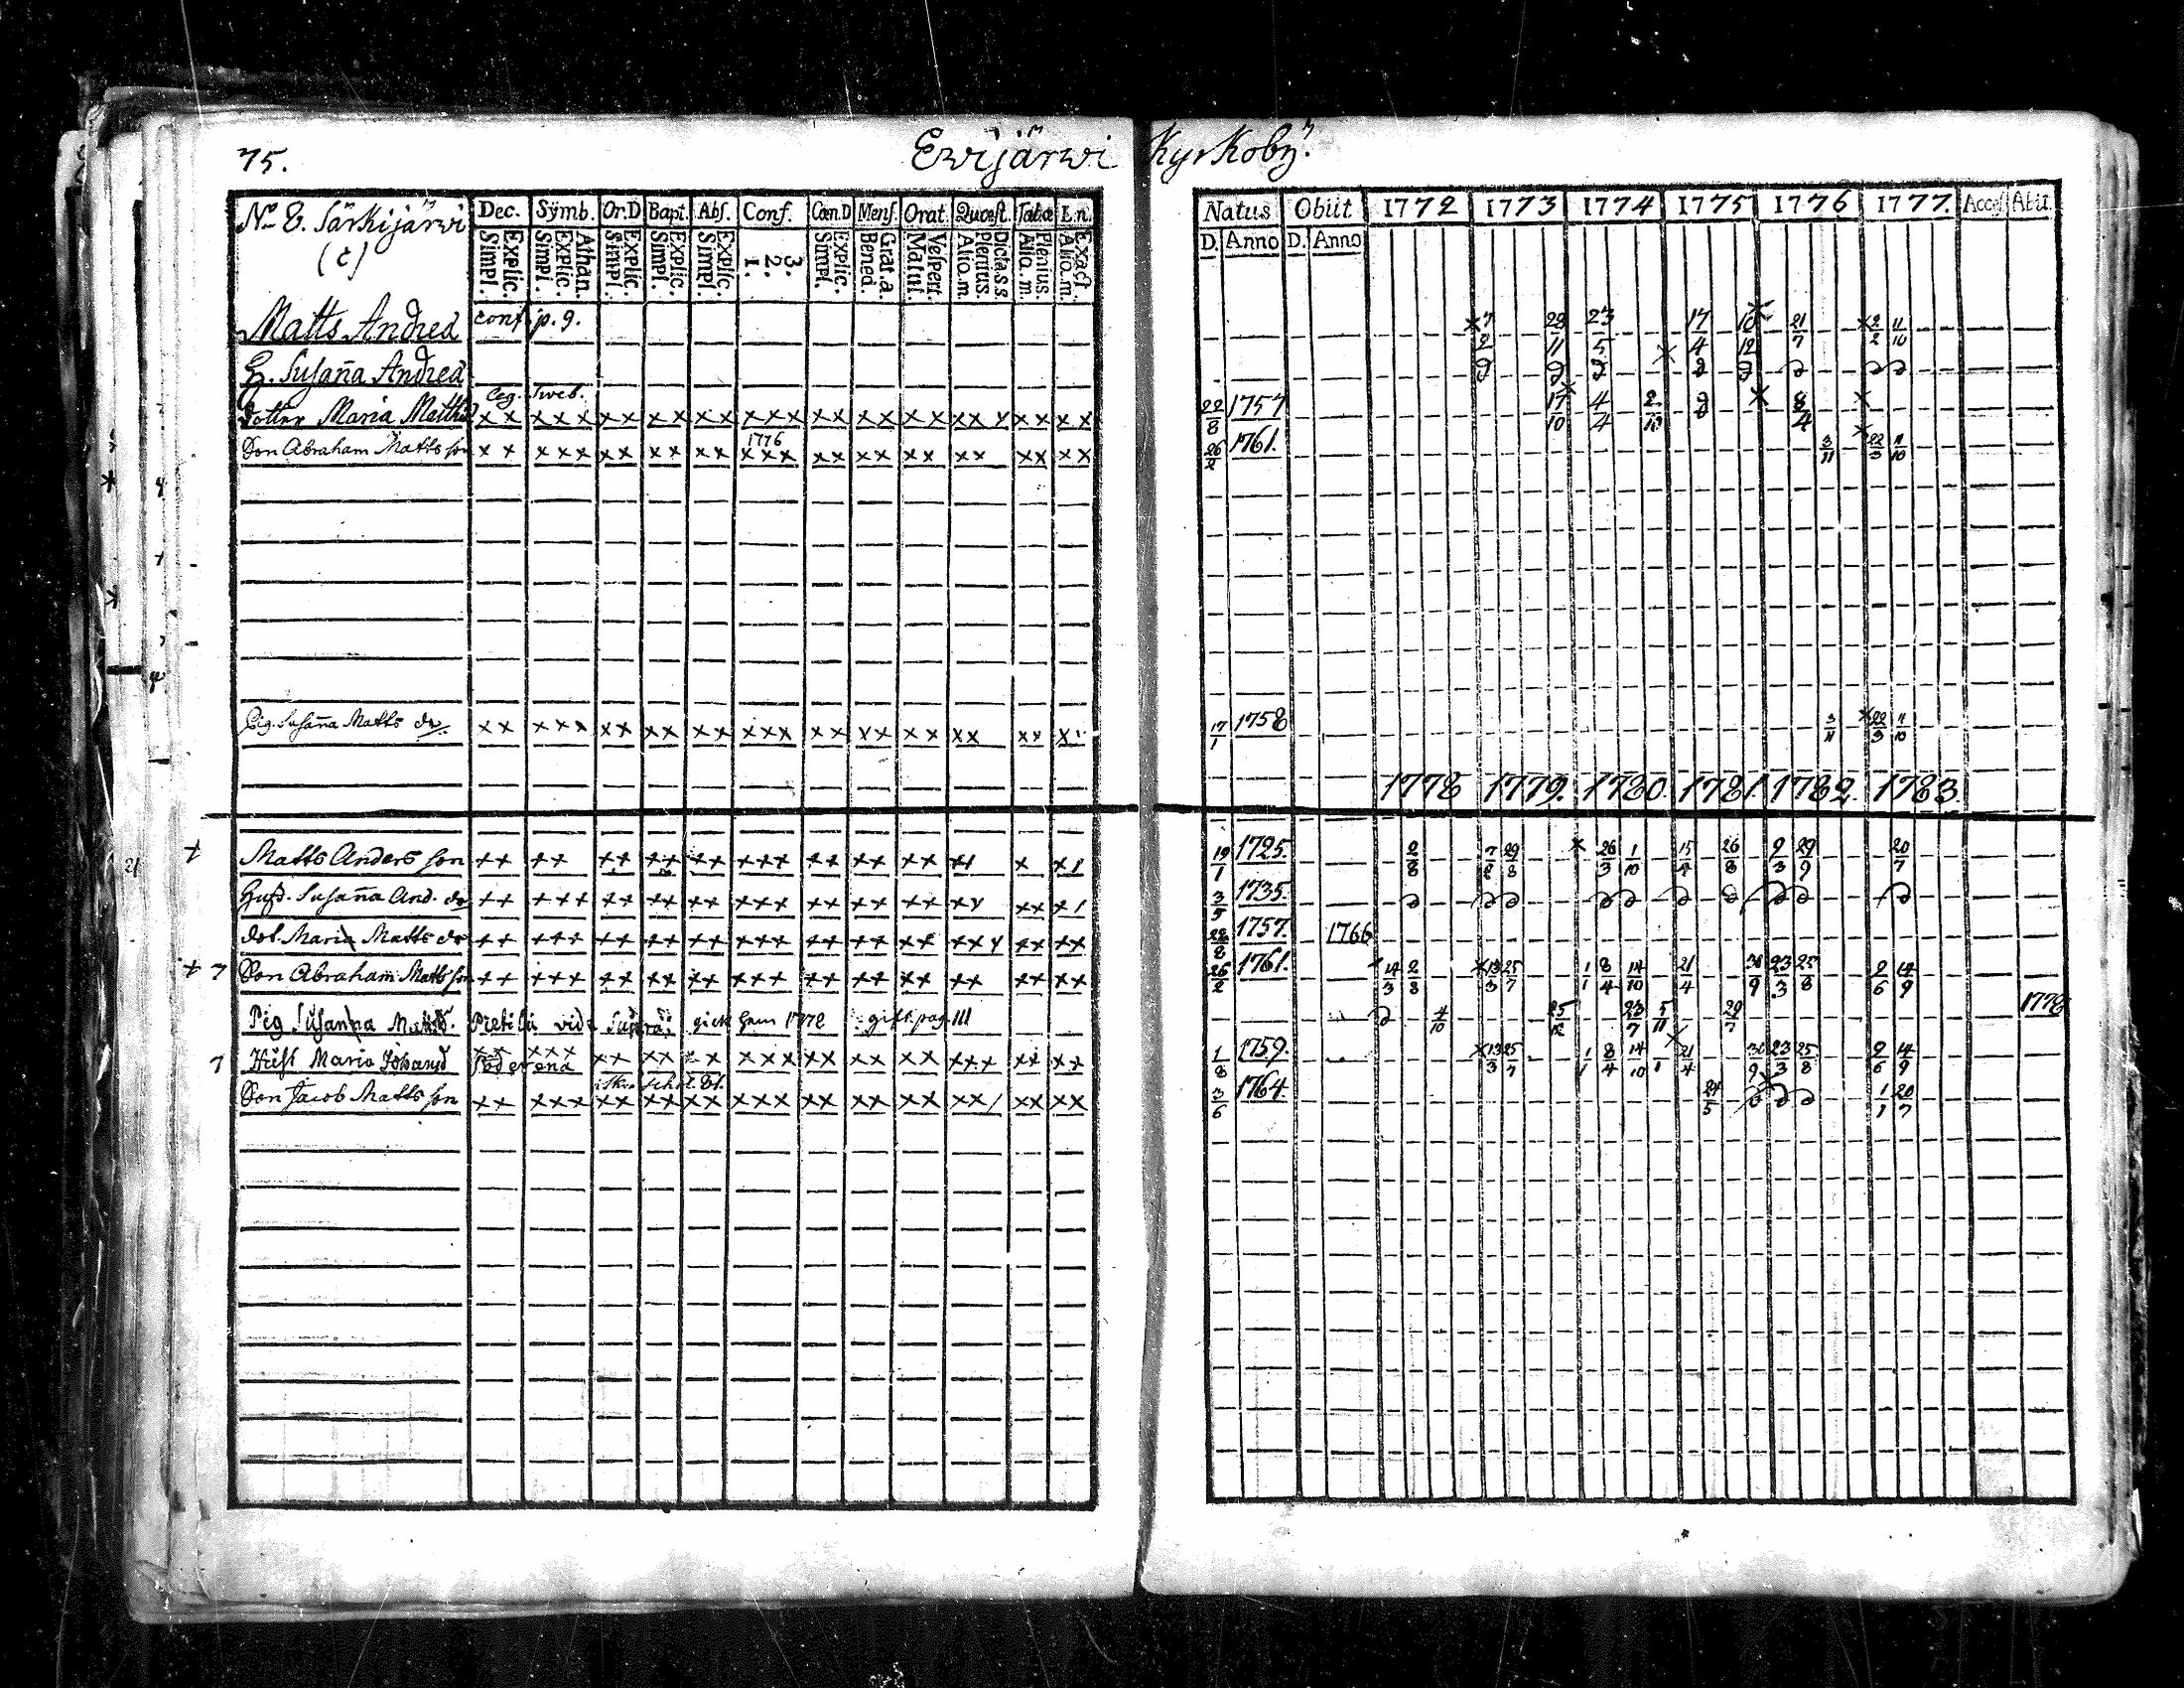 75. Ewijärwi Kyrkoby.
No 8. Särkijärwi
(c)
Dec. Symb. Or.D Bapt. Abs. Conf. Cœn.D Mens. Orat. Quæst. Tabæ
Explic. Simpl. Athan. Explic. Simpl. Explic. Simpl. Explic. Simpl. Explic. Simpl. 3. 2. 1. Explic. Simpl. Grat.a. Bened. Vespert. Matut. Plenius. Aliq.m. Plenius. Aliq.m. Exact Aliq.m.
Natus Obiit 1772 1773 1774 1775 1776 1777. Access Abit.
D. Anno D. Anno
Matts Andreæ conf. p. 9. 7/2 28/11 23/5 17/4 10/12 21/7 2/2 11/10
H. Susaña Andreæ
Leg. Sweb.
dotter Maria Matths xx xxx xx xx xx xxx xx xx xx xx xx xx 22/8 1757 17/10 4/4 2/10 8/4
1776
Son Abraham Matts son xx xxx xx xx xx xxx xx xx xx xx xx xx 26/2 1761. 3/11 22/3 11/10
Pig. Susaña Matts dr. xx xxx xx xx xx xxx xx xx xx xx xx 17/1 1758 3/11 22/3 11/10
1778 1779. 1780. 1781. 1782. 1783.
Matts Anders son xx xx xx xx xx xxx xx xx xx x 19/1 1725. 2/8 7/2 29/8 26/3 1/10 15/4 26/8 2/3 29/9 20/7
Hust. Susaña And. dr xx xxx xx xx xx xxx xx xx xx xx 3/5 1735.
dot. Maria Matts dr xx xxx xx xx xx xxx xx xx xx xx xx 22/8 1757. 1766
7 Son Abraham Matts son xx xxx xx xx xx xxx xx xx xx xx xx xx 26/2 1761. 14/3 2/8 13/3 25/7 1/1 8/4 14/10 21/4 30/9 23/3 25/8 2/6 14/9
Pig Susanna Matts. vide gick hem 1778 gift pag. 111 4/10 25/12 23/7 5/11 29/7 1778
7 Hust Maria xx xxx xx xx xx xxx xx xx xx xxx xx xx 1/8 1759. 13/3 25/7 1/1 8/4 14/10 21/4 30/9 23/3 25/8 2/6 14/9
Son Jacob Matts son xx xxx xx xx xx xxx xx xx xx xx/ xx xx 3/6 1764. 24/5 1/1 20/7